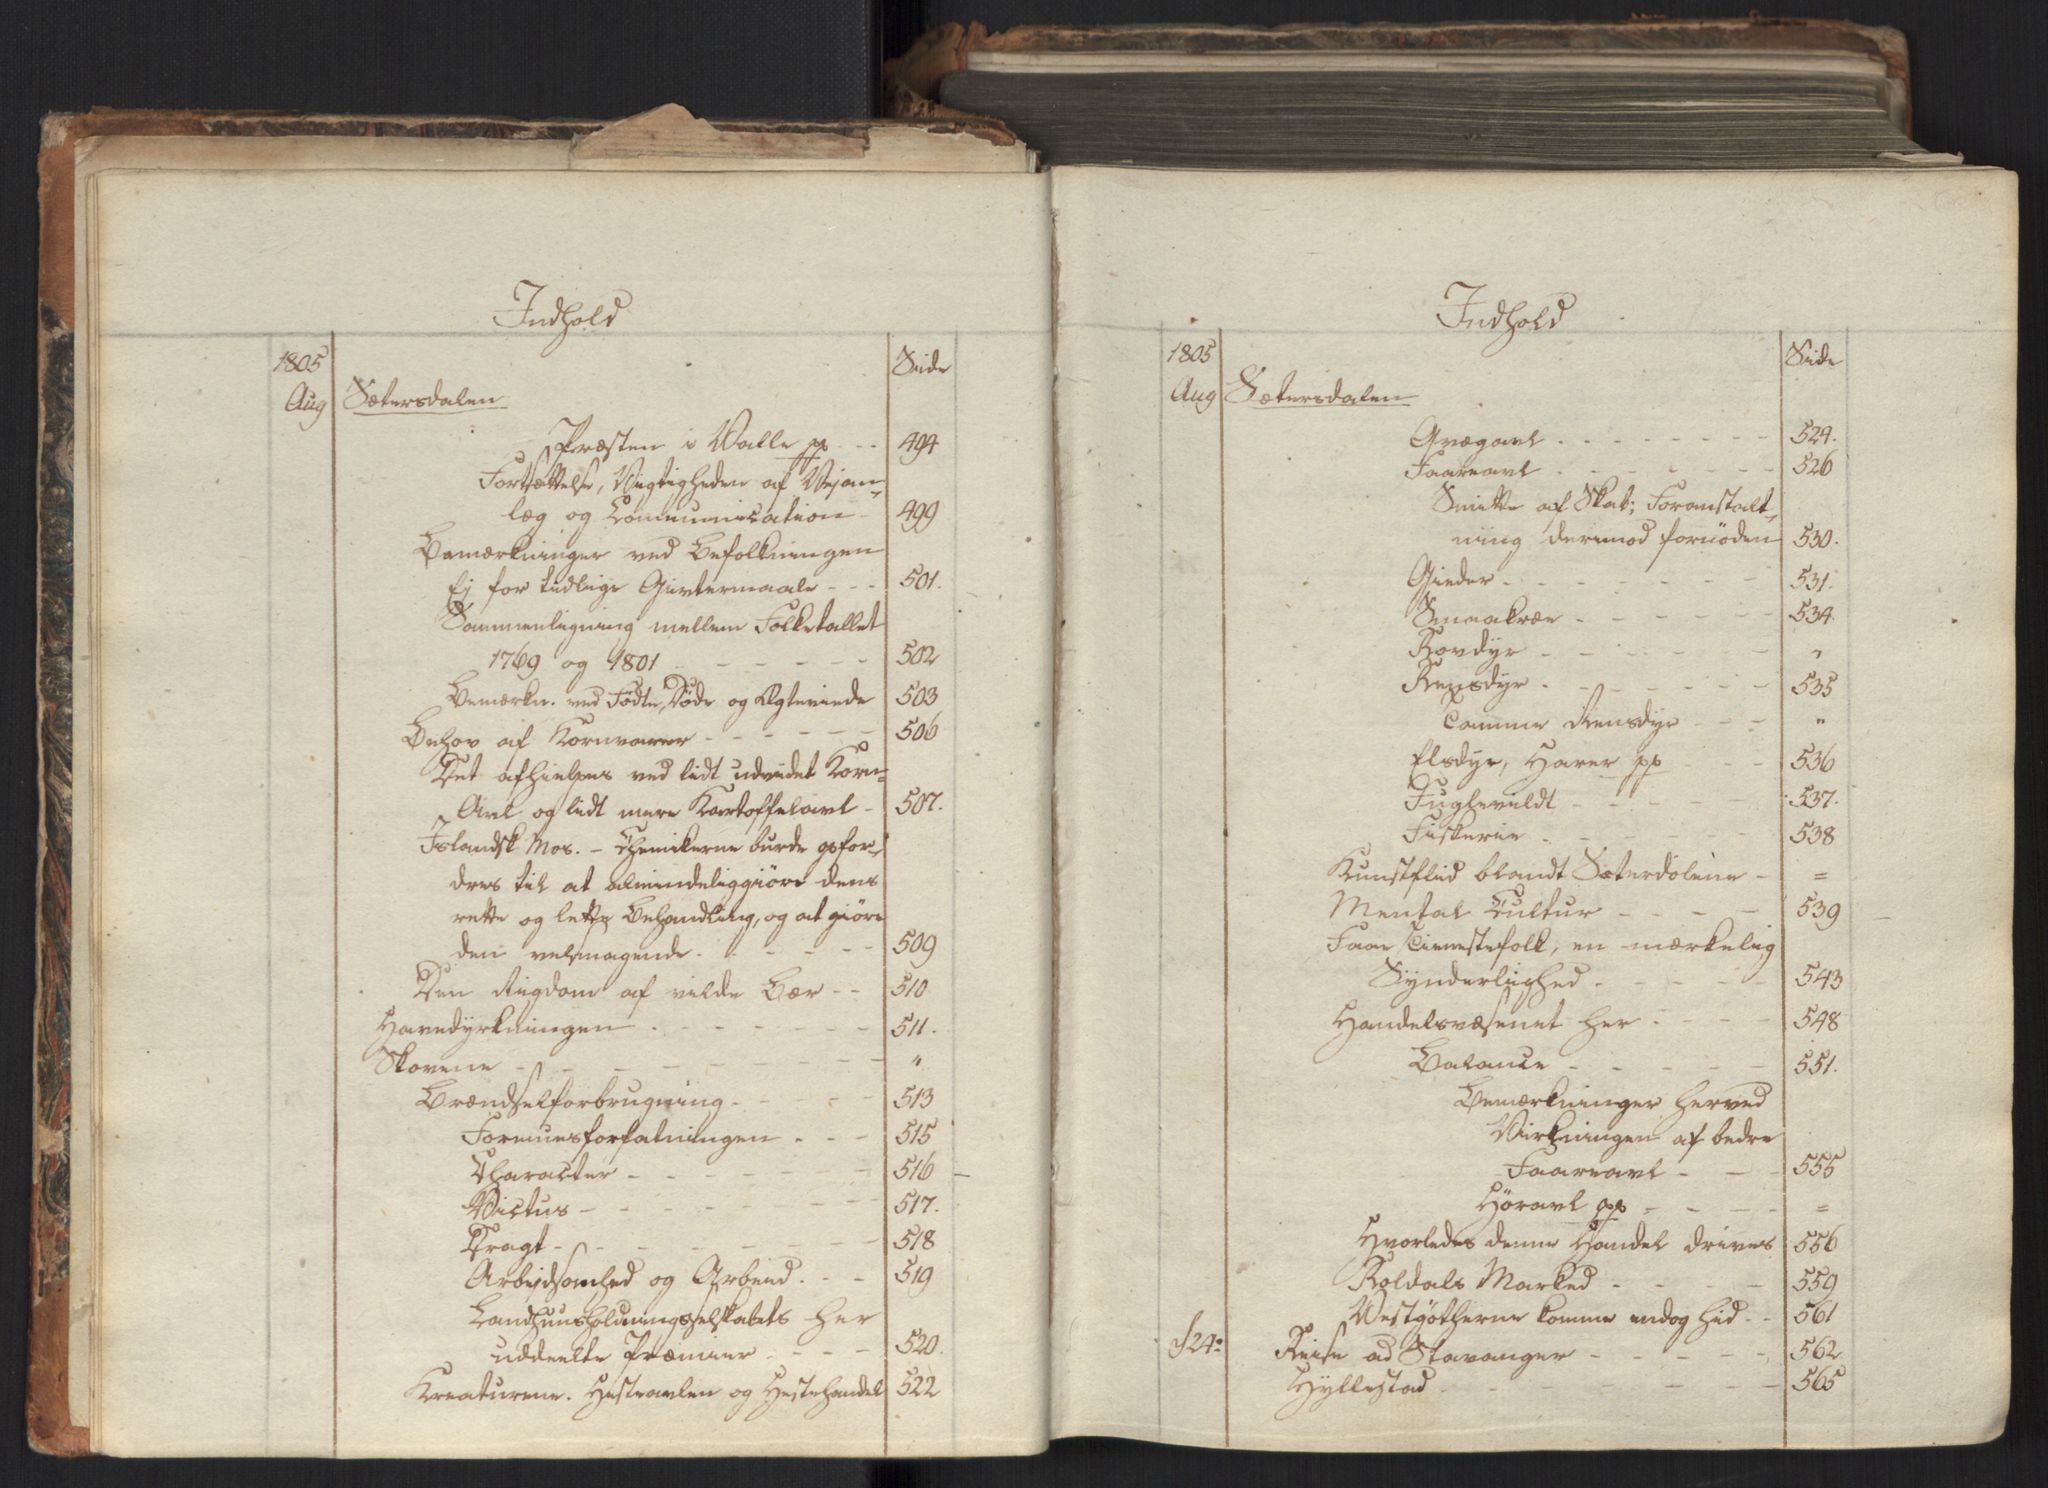 Indhold
1805 Side
Aug Sætersdalen
Præsten i Valle pp - - 494
Fortsættelse, Vigtigheden af Vejan-
læg og Communication - 499
Bemærkninger ved Befolkningen
Ej for tidlige Givtermaale - - - 501.
Sammenligning mellem Folketallet
1769 og 1801 - - - - - - 502
Bemærkn. ved Fødte, Døde og Ægteviede 503
Behov af Kornvarer - - - - - - 506
Det afhielpes ved lidt udvidet Korn-
Avl og lidt mere Kartoffelavl - 507.
Islandsk Mos. - Chemikerne burde opfor-
dres til at almindeliggiøre dens
rette og lette Behandling, og at giøre
den velsmagende - - - - - 509
Den Rigdom af vilde Bær - - 510
Havedyrkningen - - - - - - - 511.
Skovene - - - - - - - - - "
Brændselforbrugning - - - - 513
Formuesforfatningen - - - 515
Character - - - - - - - 516 -
Victus - - - - - - - - 517.
Dragt - - - - - - - - - 518
Arbejdsomhed og Arbeid - - - 519
Landhuusholdningsselskabets her
uddeelte Præmier - - - - 520.
Kreaturene. Hesteavlen og Hestehandel 522
Indhold
1805 Side
Aug Sætersdalen
Qvægavl - - - - - - - - 524.
Faareavl - - - - - - - 526
Smitte af Skab; Foranstalt-
ning derimod fornöden 530.
Gieder - - - - - - - 531.
Smaakræe - - - - - - 534.
Rovdyr - - - - - - - "
Rensdyr - - - - - - - 535
Tamme Rensdyr - - - "
Elsdyr, Harer pp - - - 536
Fuglevildt - - - - - - 537.
Fiskerie - - - - - - - 538
Kunstflid blandt Sæterdölene - =
Mental Cultur - - - - 539
Faae Tienestefolk, en mærkelig
Synderlighed - - - - - 543
Handelsvæsenet her - - - - 548
Balance - - - - - 551.
Bemærkninger herved
Virkningen af bedre
Faareavl - - - 555
Höravl pp - - - - =
Hvorledes denne Handel drives 556
Roldals Marked - - - - 559
Vestgötherne komme endog hid - - 561
d 24e Reise ad Stavanger - - - - - 562
Hyllestad - - - - - - - - 565